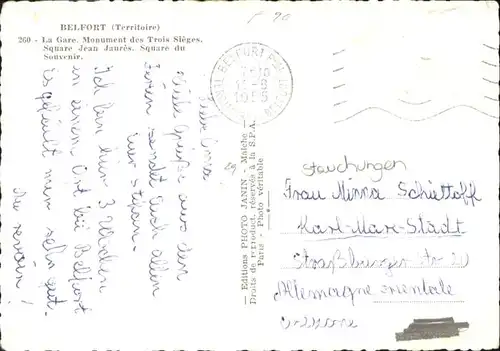 BELFORT (Territoire)
260 - La Gare. Monument des Trois Sièges.
Square Jean Jaurès. Square du
Souvenir.
F 90
BELFORT
Liebe Oma!
Viele Grüße aus den
Ferien sendet Euch allen
Euer Stefan.
Ich bin hier 3 Wochen
in einem Ort bei Belfort
Es gefällt mir sehr gut.
Au revoir!
Editions PHOTO JANIN - Maîche
Droits de reproduct. réservés à la S.P.A.
Paris - Photo véritable.
Stauchungen
Frau Minna Schuttoff
Karl-Marx-Stadt
Straßburger Str. 21
Allemagne orientale